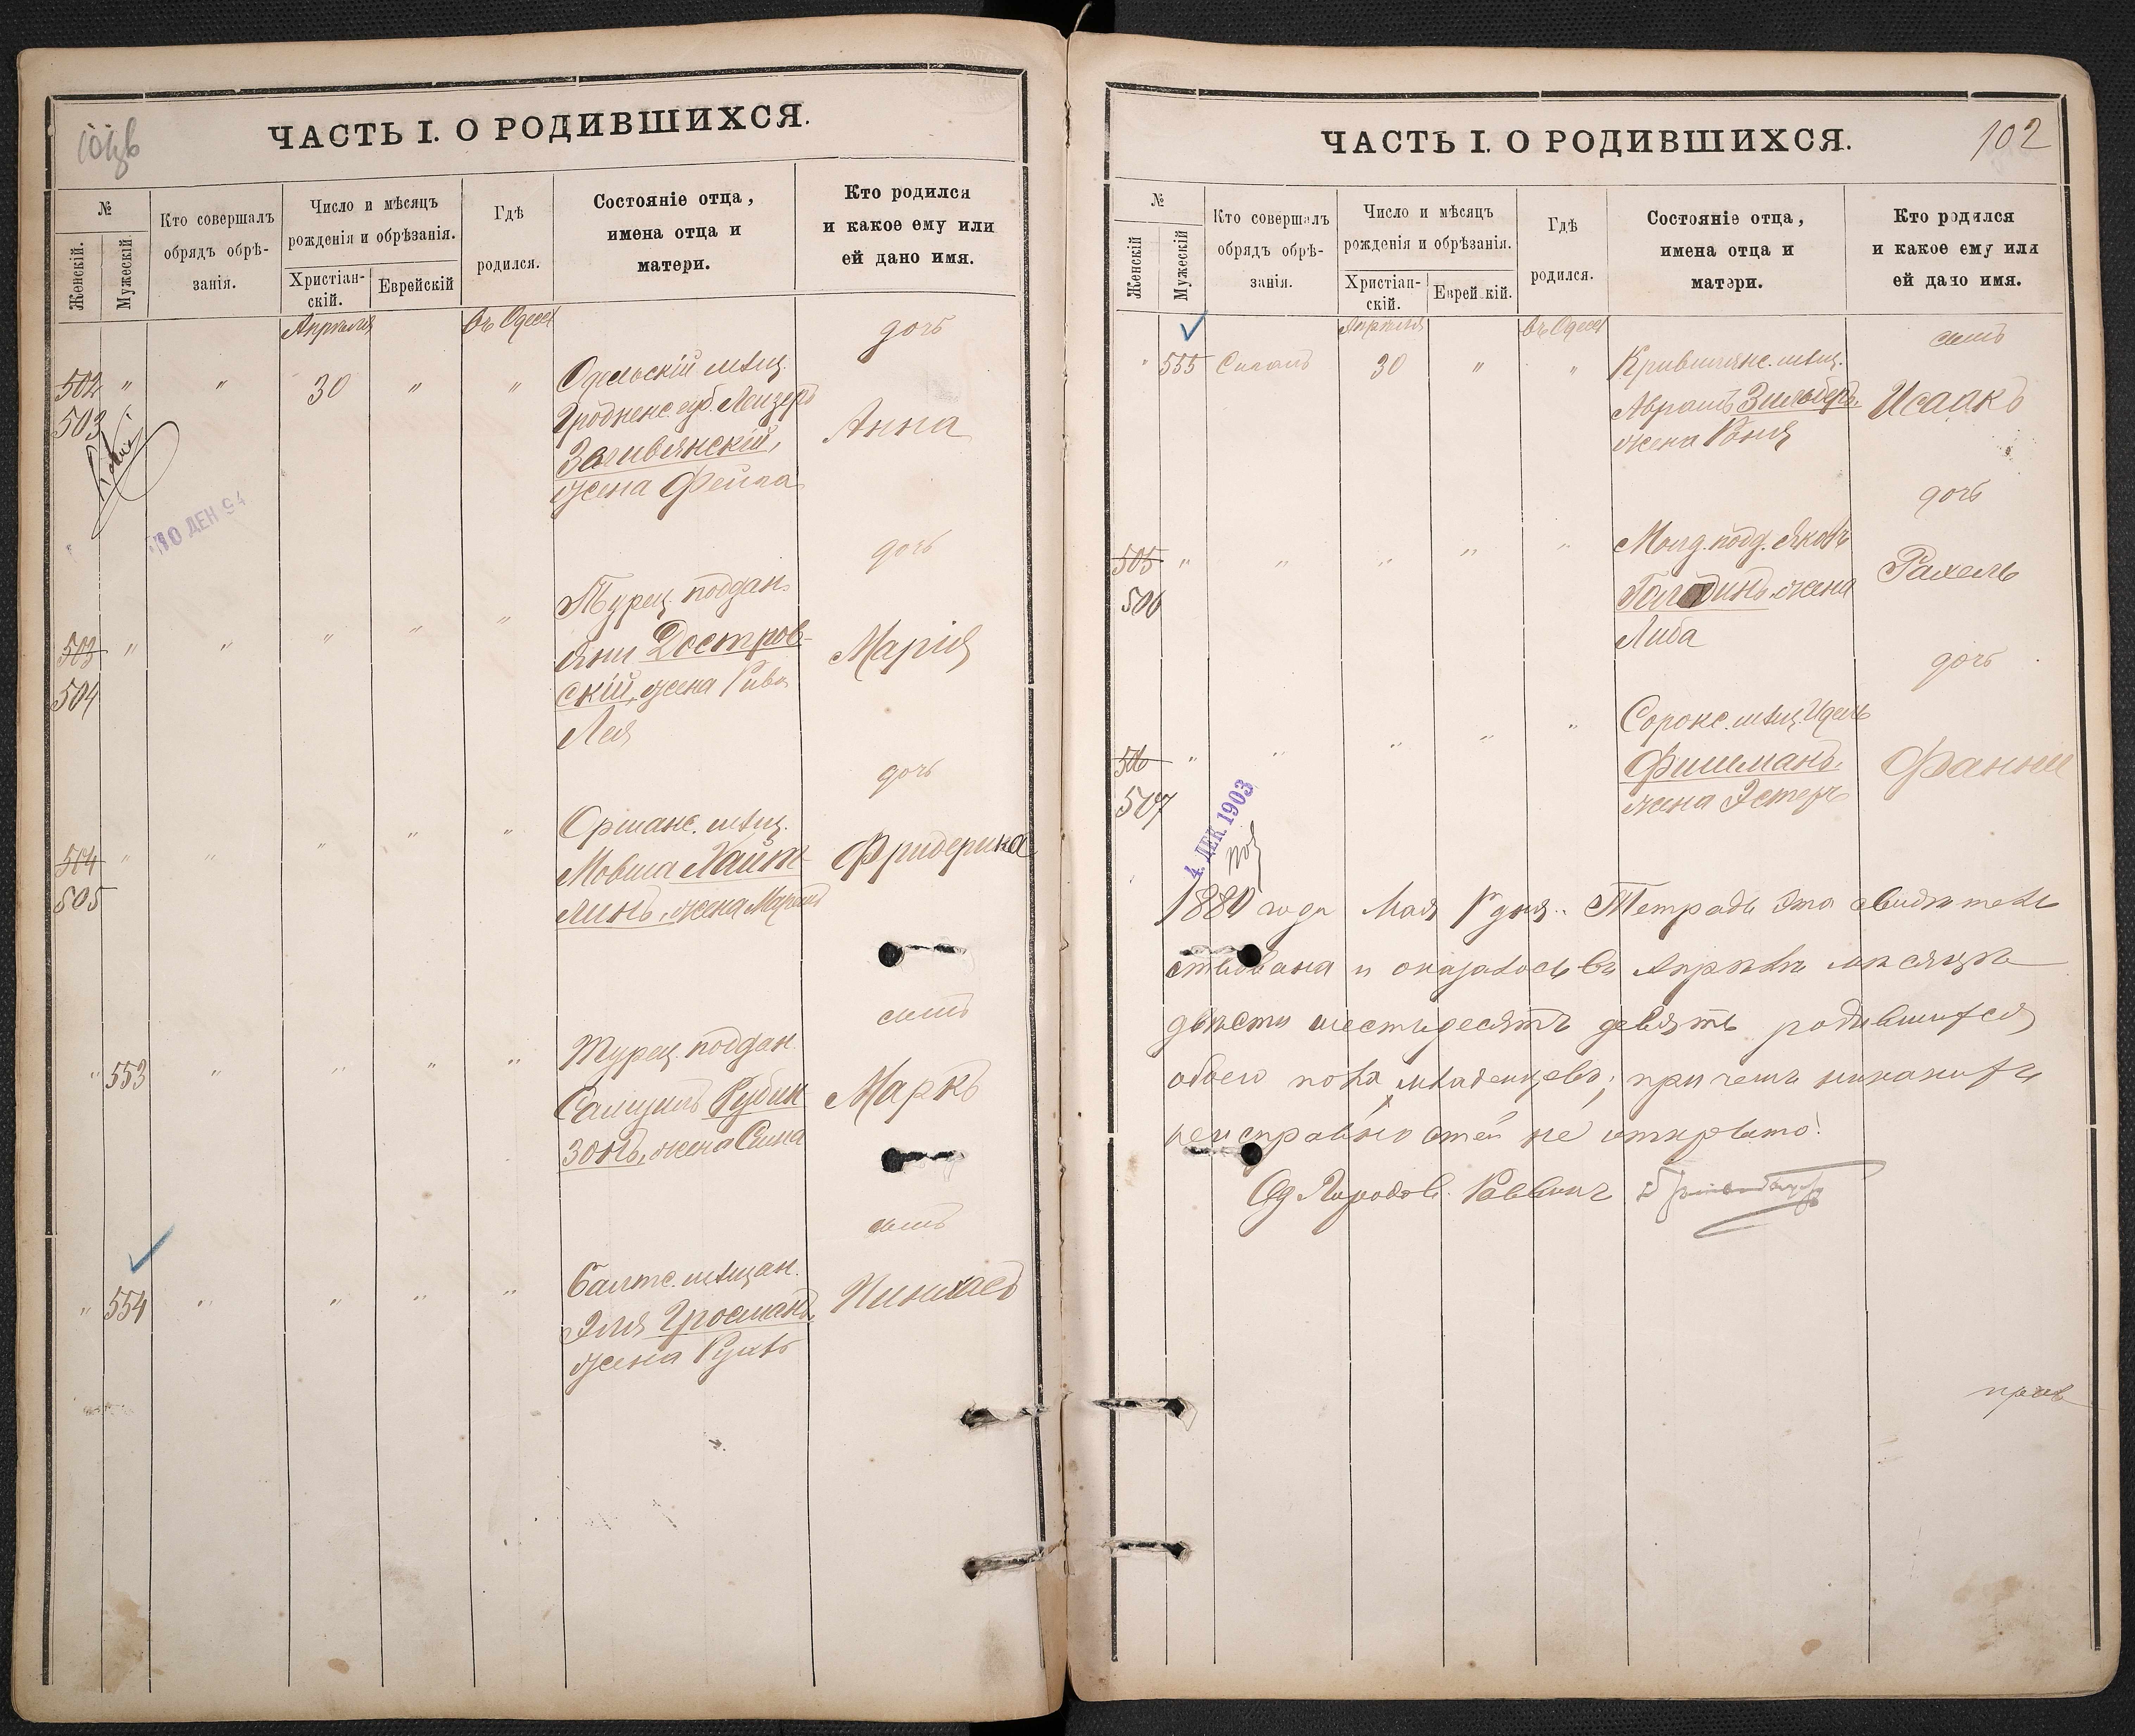 ЧАСТЬ I. О РОДИВШИХСЯ.
№
Женскій.
Мужескій
Кто совершалъ
обрядъ обрѣ-
занія.
Число и мѣсяцъ
рожденія и обрѣзанія.
Христіан-
скій.
Еврейскій
Гдѣ
родился.
Состояніе отца,
имена отца и
матери.
Кто родился
и какое ему или
ей дано имя.
Апрѣля
въ Одессѣ
дочь
502 " " 30 " "
503
мѣщ.
Гродненс. губ. Лейзеръ
жена Фейга
Анна
10 ДЕН 94
дочь
503 " " " " "
504
Турец. поддан.
Достров-
скій, жена Рива
Лея
Марія
дочь
504 " " " " "
505
Оршанс. мѣщ.
Мовша Хайт-
линъ, жена
Фридерика
сынъ
" 553 " " " "
Турец. поддан.
Рубин
зонъ, жена
Маркъ
сынъ
" 554 " " " " "
Балтс. мѣщан.
Эля Гросманъ,
жена
Пинхасъ
ЧАСТЬ I. О РОДИВШИХСЯ.
102
№
Женскій
Мужескій
Кто совершалъ
обрядъ обрѣ-
занія.
Число и мѣсяцъ
рожденія и обрѣзанія.
Христіан-
скій.
Еврейскій.
Гдѣ
родился.
Состояніе отца,
имена отца и
матери.
Кто родился
и какое ему или
ей дано имя.
Апрѣля
въ Одессѣ
сынъ
" 555 30 " "
мѣщ.
Абрамъ Зильберъ,
жена Раня
Исаакъ
дочь
505 " " " " "
506
Молд. подд. Яковъ
жена
Либа
Рахель
дочь
506 " " " " "
507
Сорокс. мѣщ. Идель
Фишманъ,
жена Эстеръ
Фанни
4. ДЕК 1903
1880 года Мая 1 дня. Тетрадь эта свидѣтель
ствована и оказалось въ Апрѣлѣ мѣсяцѣ
двѣсти шестьдесятъ девять родившихся
обоего пола младенцевъ; при чемъ никакихъ
неисправностей не открыто.
Од. Городов. Раввинъ